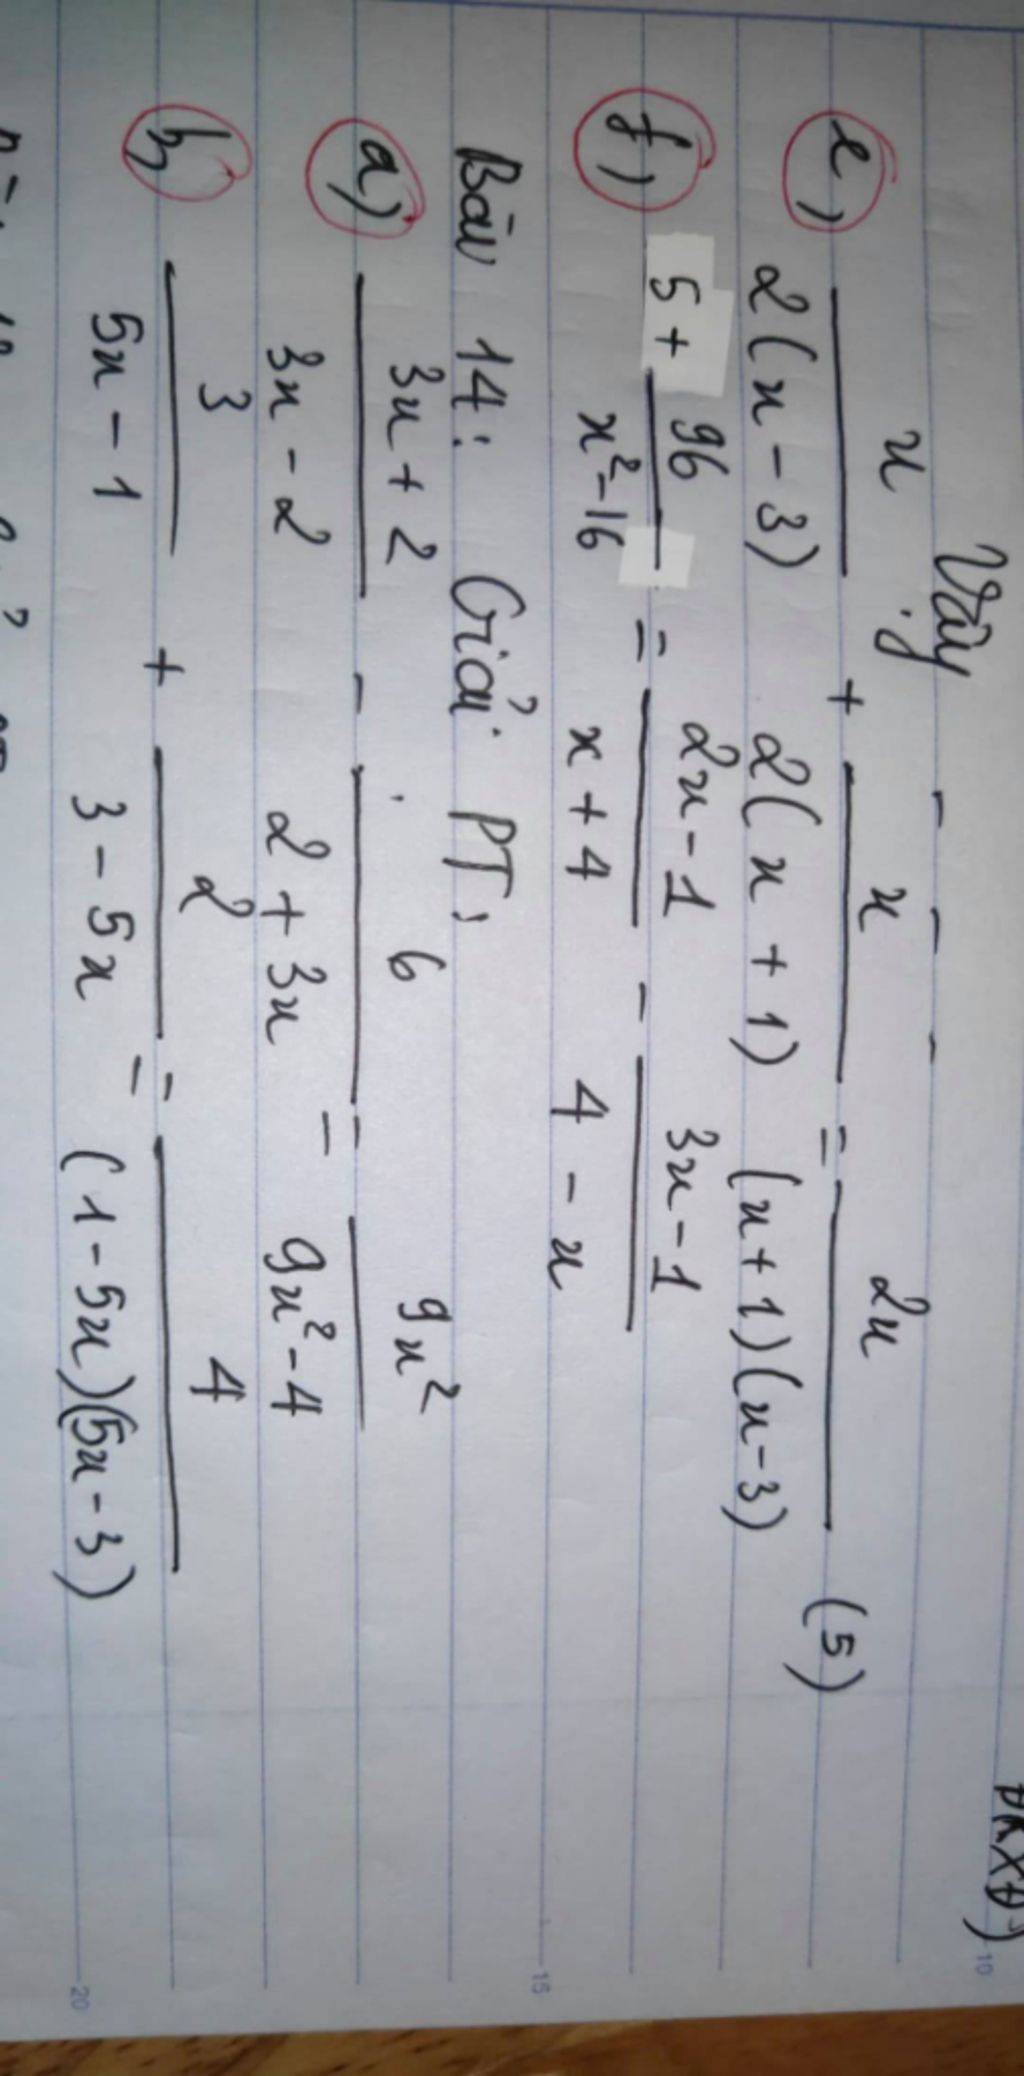 ĐKXĐ)
10
Vậy - - - -
e) x/2(x - 3) + x/2(x + 1) = 2x/(x+1)(x-3) (5)
f) 5 + 96/x²-16 = 2x-1/x+4 - 3x-1/4-x
15
Bài 14: Giải PT:
a) 3x+2/3x-2 - 6/2+3x = 9x²/9x²-4
b) 3/5x-1 + 2/3-5x = 4/(1-5x)(5x-3)
20